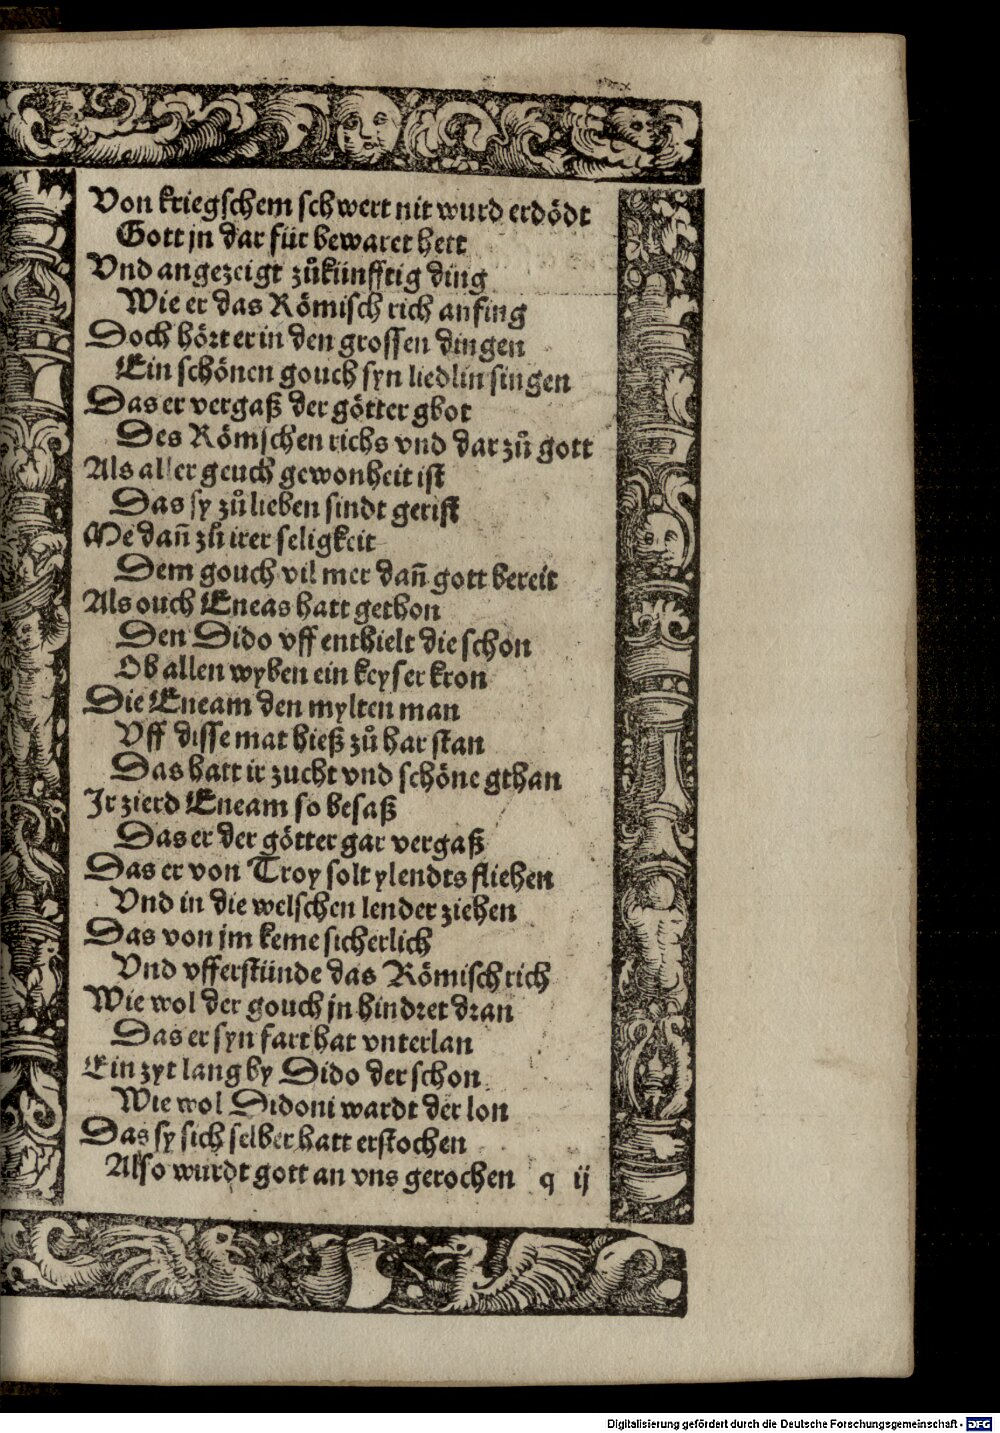 Von kriegschem schwert nit wurd erdödt
Gott jn dar für bewaret hett
Vnd angezeigt zůkünfftig ding
Wie er das Römisch rich anfing
Doch hört er in den grossen dingen
Ein schönen gouch syn liedlin singen
Das er vergaß der götter gbot
Des Römschen richs vnd dar zů gott
Als aller geuch gewonheit ist
Das sy zů lieben sindt gerist
Me dañ zů irer seligkeit
Dem gouch vil mer dañ gott bereit
Als ouch Eneas hatt gethon
Den Dido vff enthielt die schon
Ob allen wyben ein keyser kron
Die Eneam den mylten man
Vff disse mat hieß zů har stan
Das hatt ir zucht vnd schöne gthan
Jr zierd Eneam so besaß
Das er der götter gar vergaß
Das er von Troy solt ylendts fliehen
Vnd in die welschen lender ziehen
Das von jm keme sicherlich
Vnd vfferstünde das Römisch rich
Wie wol der gouch jn hindret dran
Das er syn fart hat vnterlan
Ein zyt lang by Dido der schon
Wie wol Didoni wardt der lon
Das sy sich selber hatt erstochen
Also wurdt gott an vns gerochen q ij
Digitalisierung gefördert durch die Deutsche Forschungsgemeinschaft - DFG